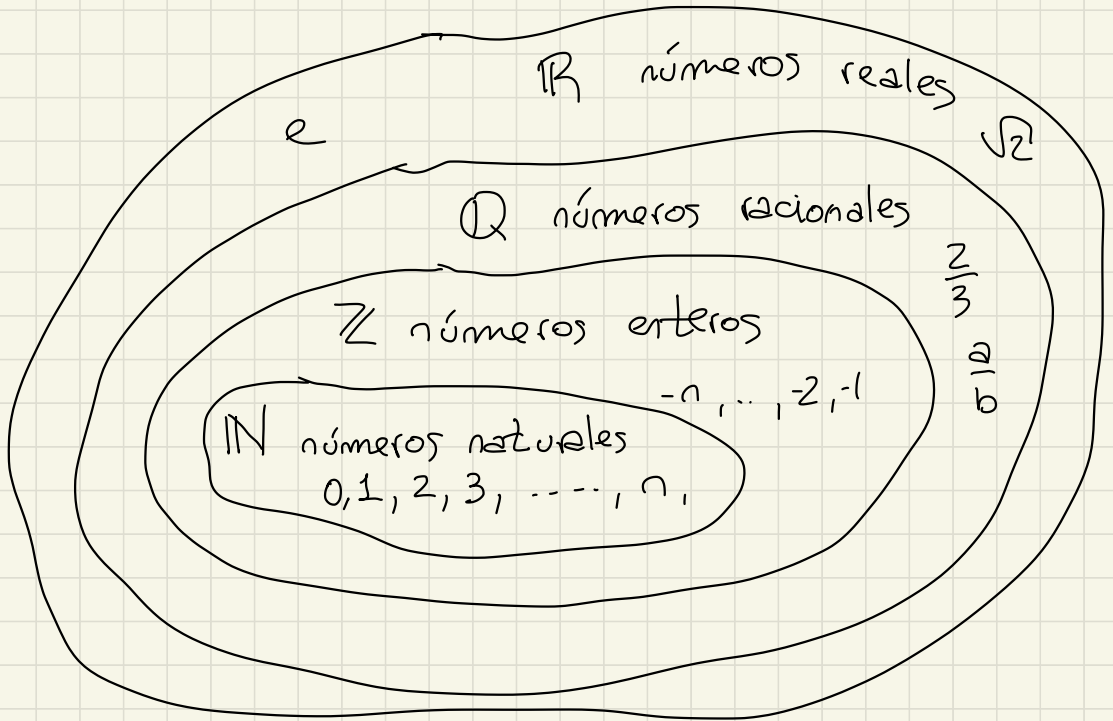 ℝ números reales
e
√2
ℚ números racionales
2/3
ℤ números enteros
a/b
-n, .., -2, -1
ℕ números naturales
0, 1, 2, 3, ....., n,